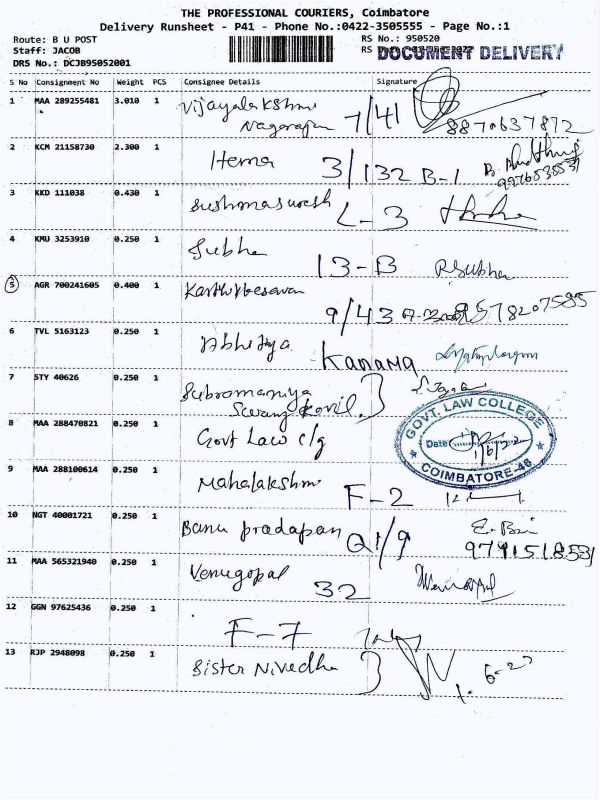 THE PROFESSIONAL COURIERS, Coimbatore
Delivery Runsheet - P41 - Phone No.:0422-3505555 - Page No.:1
Route: B U POST
RS No.: 950520
Staff: JACOB
DOCUMENT DELIVERY
DRS No.: DCJB95052001
S No Consignment No Weight PCS Consignee Details Signature
1 MAA 289255481 3.010 1 Vijayalakshmi
Nagarajan 7/41 8870637872
2 KCM 21158730 2.300 1 Hema 3/132 B-1
3 KKD 111038 0.430 1 Sushmasuresh L-3
4 KMU 3253910 0.250 1 Subha
13-B RSubha
5 AGR 700241605 0.400 1
9/43
6 TVL 5163123 0.250 1 Abhitya
Kanama
7 STY 40626 0.250 1 Subromaniya
Swamy Kovil.
8 MAA 288470821 0.250 1 Govt Law clg
GOVT. LAW COLLEGE
Date
COIMBATORE-46
9 MAA 288100614 0.250 1 Mahalakshmi
F-2
10 NGT 40001721 0.250 1 Banu pradapan Q1/9
11 MAA 565321940 0.250 1 Venugopal
32
12 GGN 97625436 0.250 1
F-7
13 RJP 2948098 0.250 1 Sister Nivedha